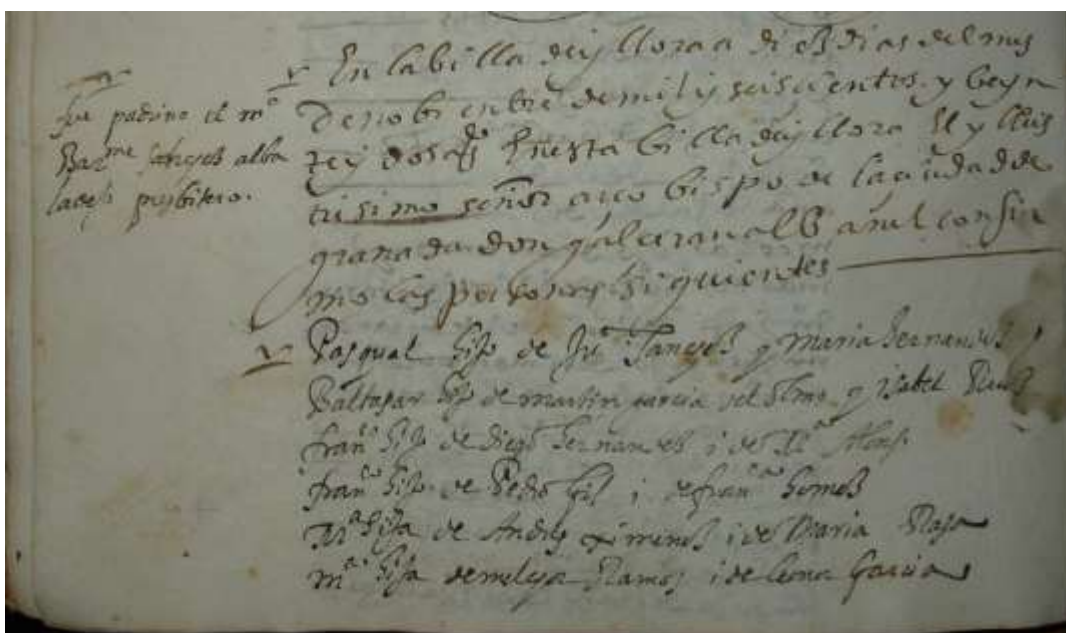 fue padrino el m°
Bar^me sanches alba
presbitero.
En la billa de yllora a dies dias del mes
de nobienbre de mil y seiscientos y beyn
te y dos a^s En esta billa de yllora El yllus
trisimo señor arco bispo de la ciudad de
granada don galseran alb anel confir
mo las personas siguientes
Pasqual hijo de Ju° Sanches y maria hernandes
Baltasar hijo de martin garcia del olmo y ysabel
fran^co hijo de diego hernandes i de M^a Alonso
fran^co hijo de Pedro gil i de fran^ca gomes
M^a hija de Andres ximenes i de Maria Rasa
m^a hija de melchor Ramos i de leonor garcia